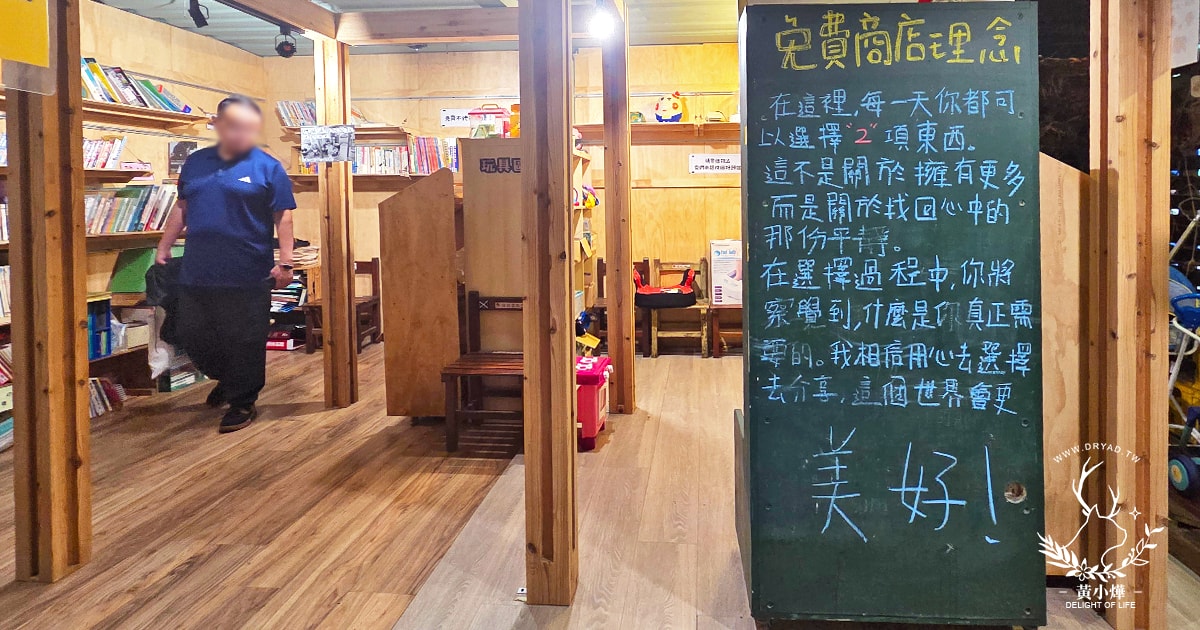 免費商店理念
在這裡,每一天你都可
以選擇"2"項東西。
這不是關於擁有更多
而是關於找回心中的
那份平靜。
在選擇過程中,你將
察覺到,什麼是你真正需
要的。我相信用心去選擇
去分享,這個世界會更
美好!
玩具區
WWW.DRYAD.TW
黃小燁
DELIGHT OF LIFE